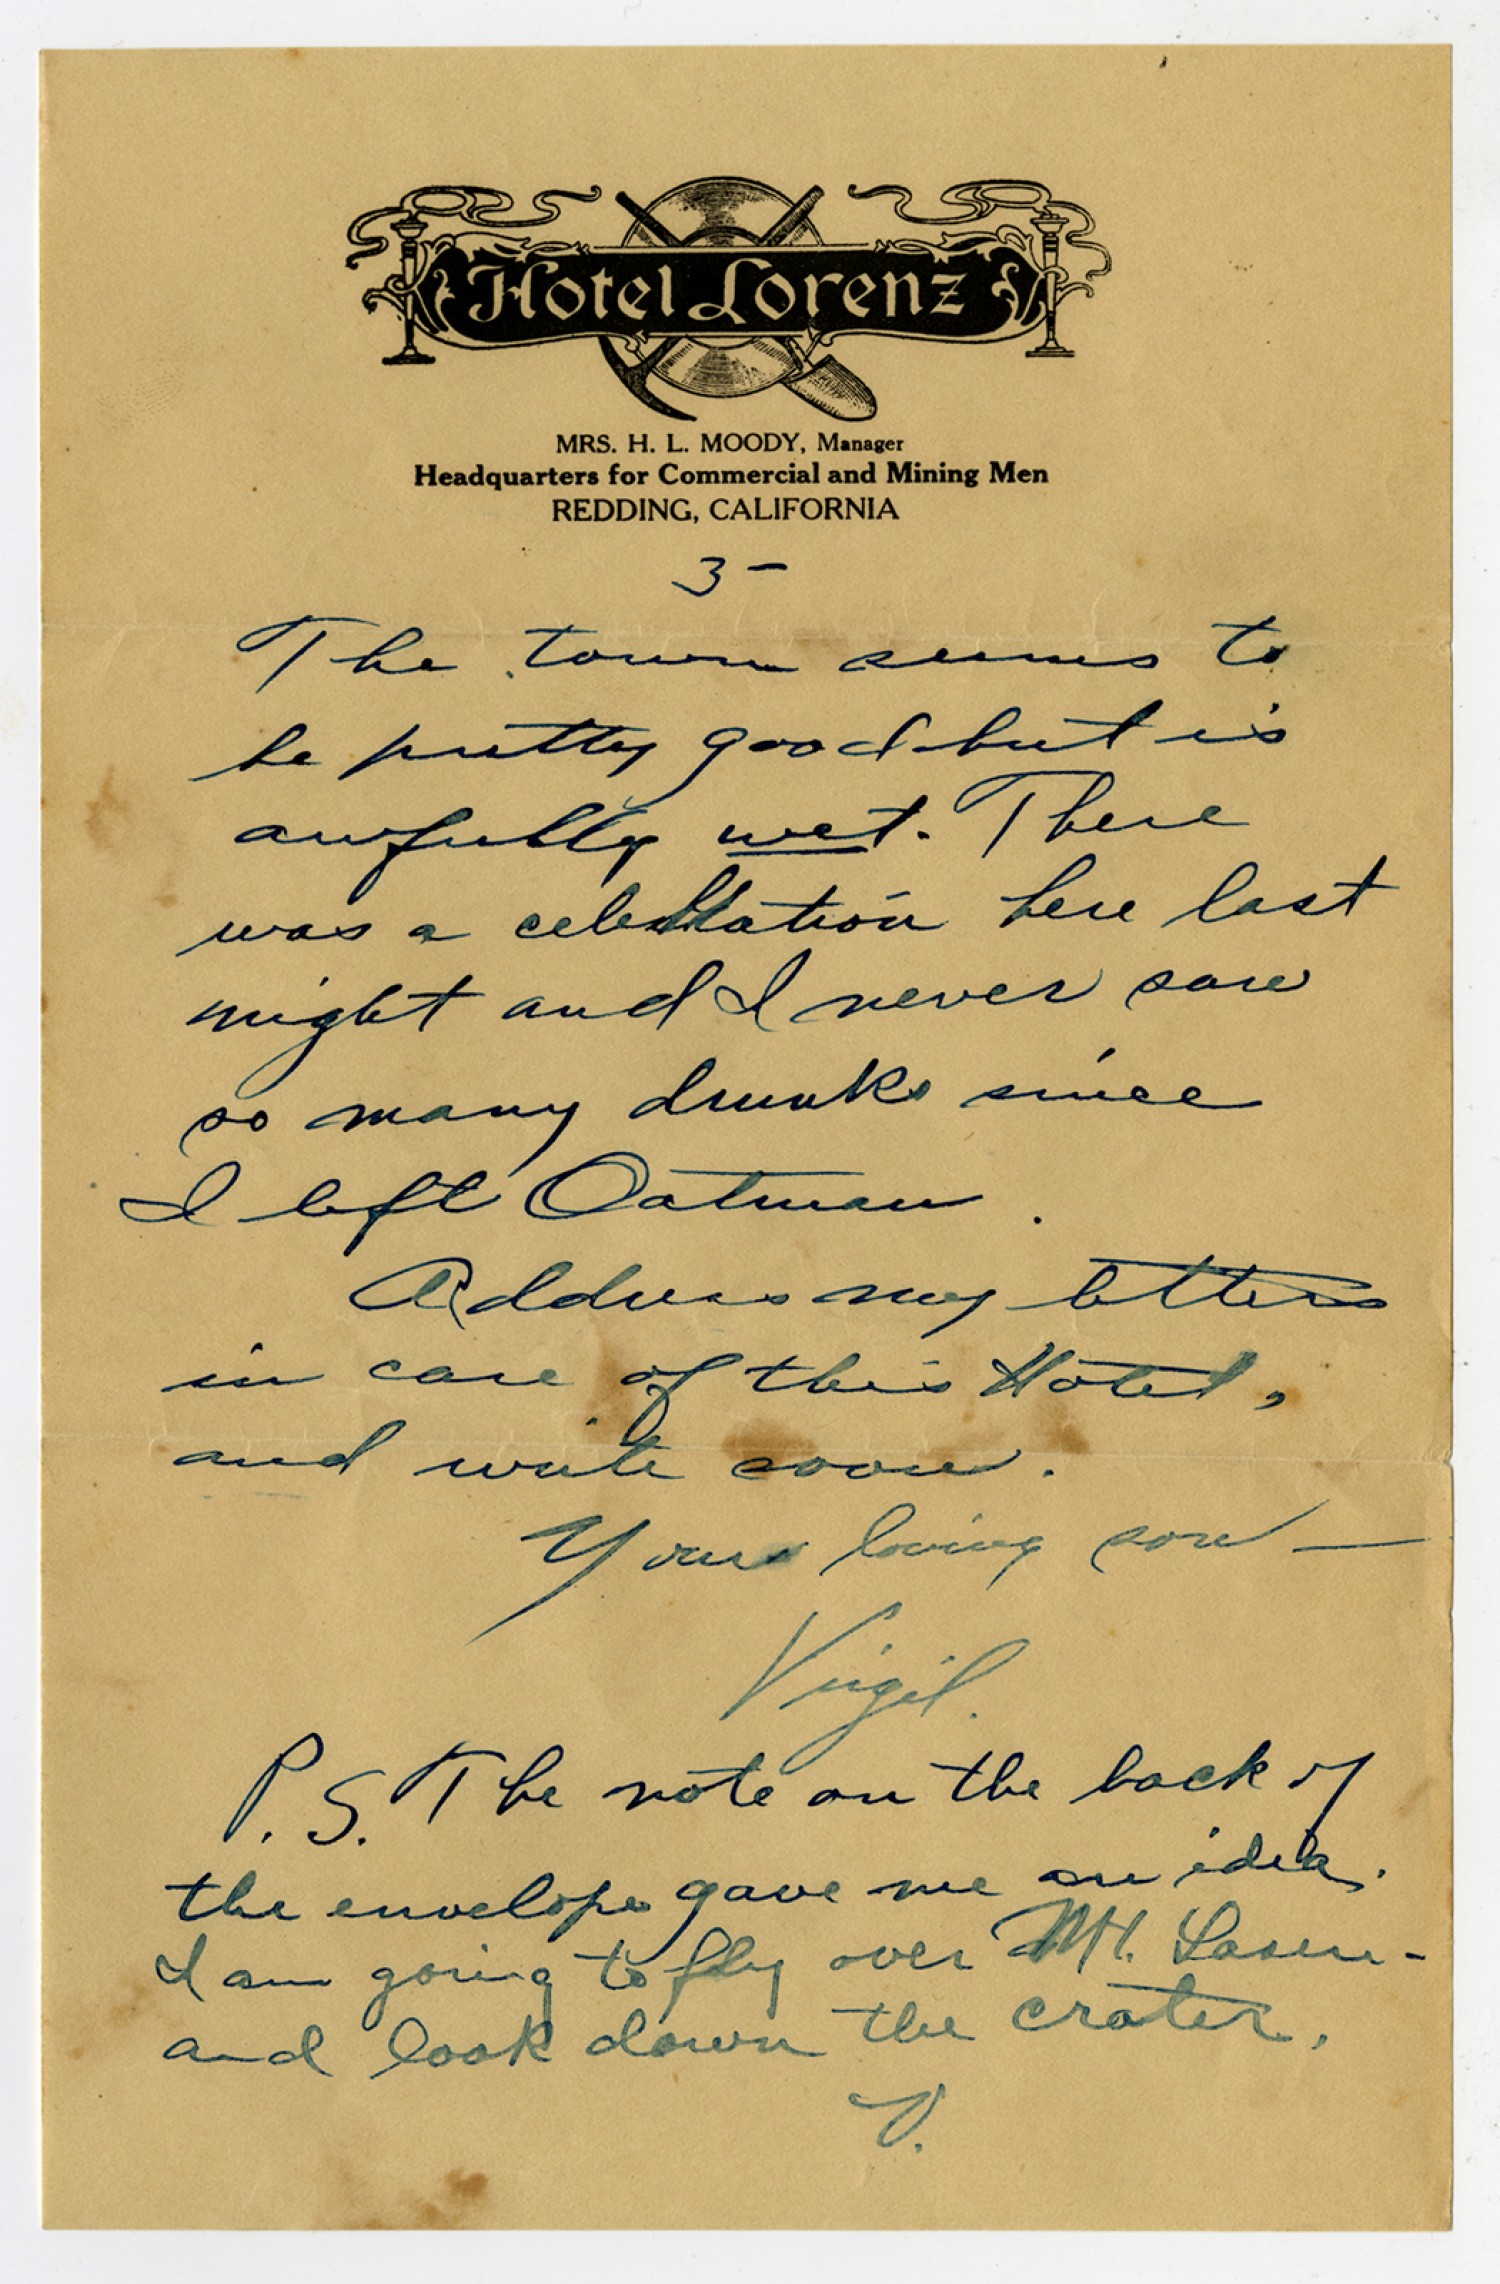 Hotel Lorenz
MRS. H. L. MOODY, Manager
Headquarters for Commercial and Mining Men
REDDING, CALIFORNIA
3-
The town seems to
be pretty good but is
awfully wet. There
was a celebration here last
night and I never saw
so many drunks since
I left Oatman.
Address my letters
in care of this Hotel,
and write soon.
Your loving son—
Virgil.
P.S. The note on the back of
the envelope gave me an idea.
I am going to fly over Mt. Lassen-
and look down the crater.
V.